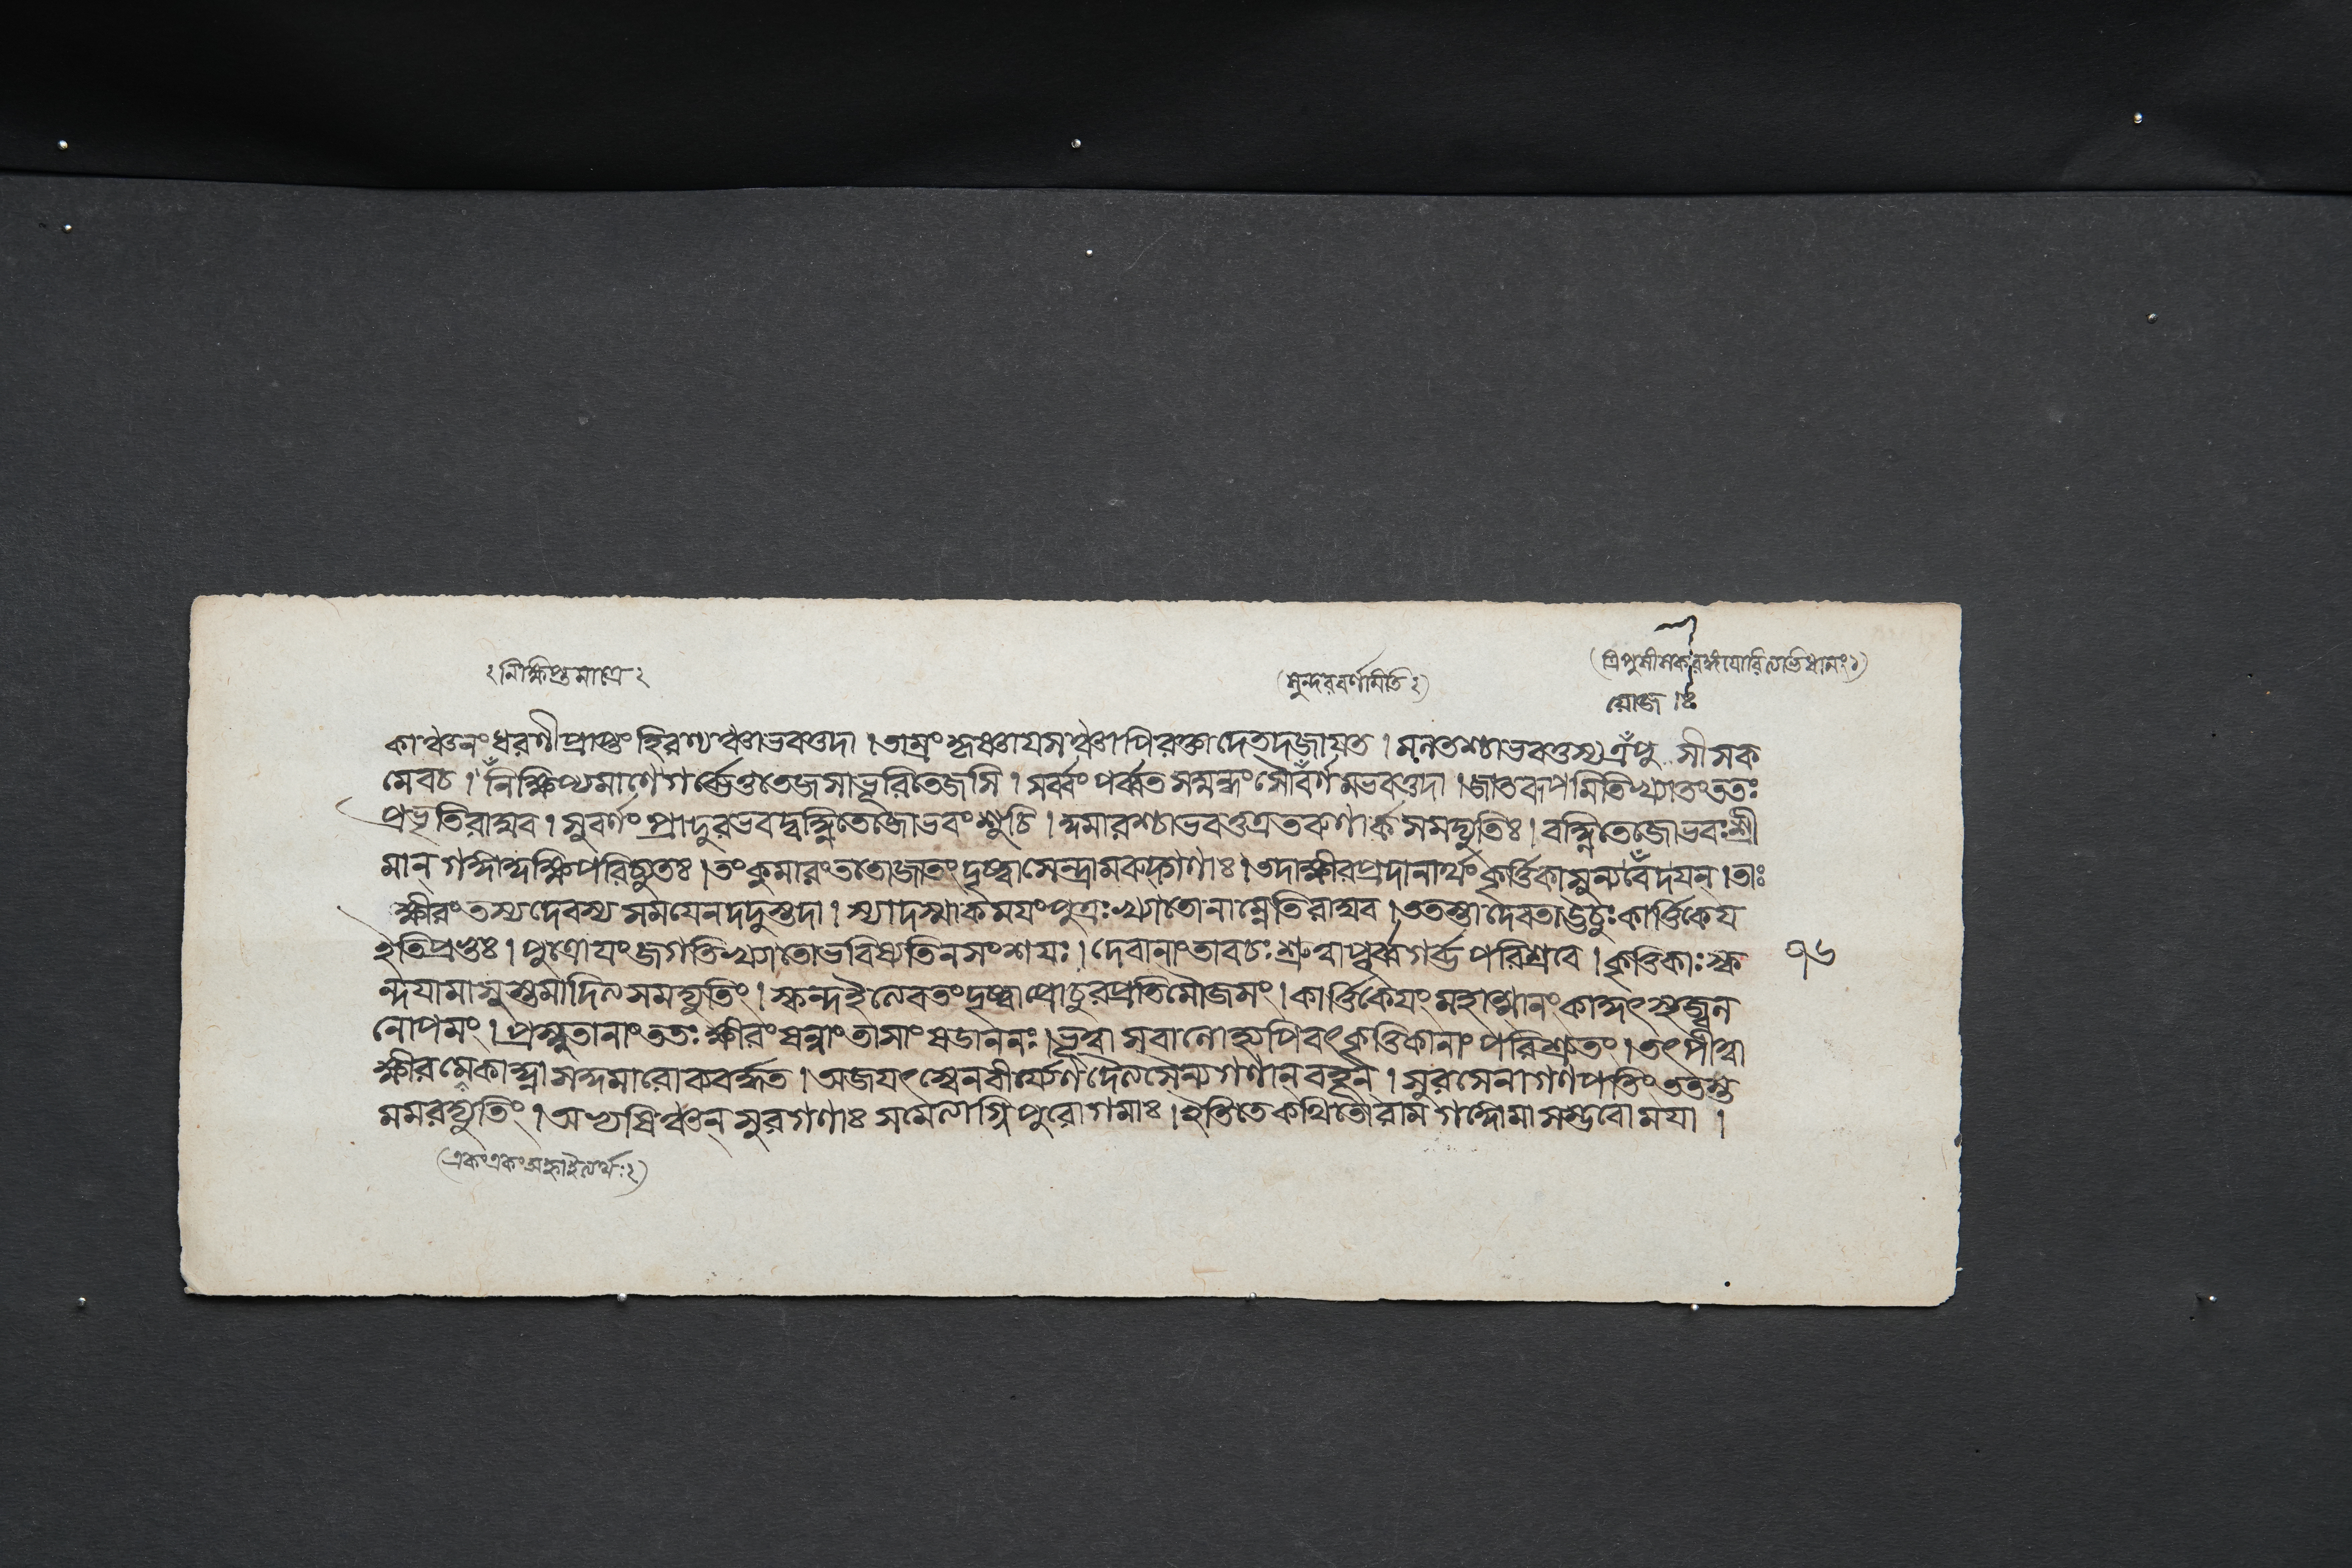 ঃনিক্ষিপ্তমাত্রেঃ
(সুন্দরবর্ণমিতিঃ)
কাঞ্চনংধরণীপ্রাপ্তং হিরণ্যঞ্চাভবত্তদা । তাম্রং কৃষ্ণাযসঞ্চাপিতৈক্ষ্ণ্যাদেতদজাযত । মলতস্যাভবত্তস্যত্রঁপু সীসক
মেবচ । নিঁক্ষিপ্যমাণেগর্ব্ভেতুতেজসাভূরিতেজসি । সর্ব্বংপর্ব্বতসন্নদ্ধং সৌবঁর্ণমভবত্তদা । জাতরূপমিতিখ্যাতংততঃ
প্রভৃতিরাঘব । সুবর্ণং প্রাদুরভবদ্বহ্নিতেজোভবংশুচি । কুমারশ্চাভবত্তত্রতরুণার্কসমদ্যুতিঃ । বহ্নিতেজোভবঃশ্রী
মান্ গঙ্গাকুক্ষিপরিচ্যুতঃ । তংকুমারংততোজাতংদৃষ্ট্বাসেন্দ্রামরুদ্গণাঃ । তদাক্ষীরপ্রদানার্থংকৃর্ত্তিকাসুন্যবেঁদযন্ । তাঃ
ক্ষীরংতস্যদেবস্য সমযেনদদুস্তদা । স্যাদস্মাকমযংপুত্রঃখ্যাতোনাম্নেতিরাঘব । ততস্তাদেবতাউচুঃকার্ত্তিকেয
ইতিপ্রভুঃ । পুত্রোযংজগতিখ্যাতোভবিষ্যতিনসংশযঃ । দেবানাংতাবচঃ শ্রুত্বাপূর্ব্বগর্ব্ভপরিশ্রবে । কৃত্তিকাঃস্ক ৭৬
ন্দযামাসুস্তমাদিত্যসমদ্যুতিং । স্কন্দইত্যেবতংদৃষ্ট্বাপ্রোচুরপ্রতিমৌজসং । কার্ত্তিকেযংমহাত্মানংকান্ত্যাজ্বলন
নোপমং । প্রস্নুতানাংততঃক্ষীরংষন্নাংতাসাংষডাননঃ । ভূত্বা সবালোহ্যপিবৎকৃত্তিকানাংপরিশ্রুতং । তৎপীত্বা
ক্ষীরমেকাহ্না । অজযৎস্বেনবীর্য্যেণদৈত্যসৈন্যগণান্ বহূন্ । সুরসেনাগণপতিংততস্ত
মমরদ্যুতিং । অভ্যষিঞ্চন্ সুরগণাঃ সমেত্যাগ্নিপুরোগমাঃ । ইতিতেকথিতোরামগঙ্গোমাসম্ভবোমযা ।
(একংএকংঅহ্নাইত্যর্থঃ)